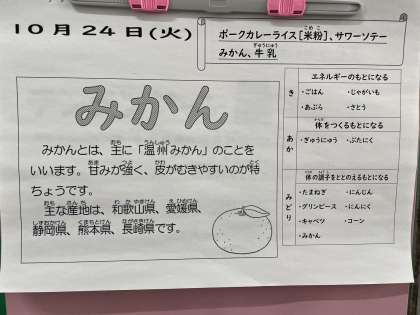 10月24日(火)
ポークカレーライス[米粉]、サワーソテー
みかん、牛乳
みかん
みかんとは、主に「温州みかん」のことを
いいます。甘みが強く、皮がむきやすいのが特
ちょうです。
主な産地は、和歌山県、愛媛県、
静岡県、熊本県、長崎県です。
き
エネルギーのもとになる
・ごはん ・じゃがいも
・あぶら ・さとう
あか
体をつくるもとになる
・ぎゅうにゅう ・ぶたにく
みどり
体の調子をととのえるもとになる
・たまねぎ ・にんじん
・グリンピース ・にんにく
・キャベツ ・コーン
・みかん